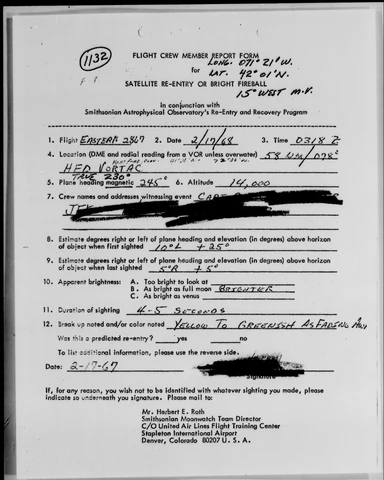 1132
FLIGHT CREW MEMBER REPORT FORM
LONG. 071° 21' W.
for LAT. 42° 01' N.
SATELLITE RE-ENTRY OR BRIGHT FIREBALL
15° WEST M.V.
in conjunction with
Smithsonian Astrophysical Observatory's Re-Entry and Recovery Program
1. Flight EASTERN 2867 2. Date 2/17/68 3. Time 0318 Z
4. Location (DME and radial reading from a VOR unless overwater) 58 NM/078°
HFD VORTAC
TRUE 230°
5. Plane heading magnetic 245° 6. Altitude 14,000
7. Crew names and addresses witnessing event
JFK
8. Estimate degrees right or left of plane heading and elevation (in degrees) above horizon
of object when first sighted 10° L + 25°
9. Estimate degrees right or left of plane heading and elevation (in degrees) above horizon
of object when last sighted 5° R + 5°
10. Apparent brightness: A. Too bright to look at
B. As bright as full moon BRIGHTER
C. As bright as venus
11. Duration of sighting 4-5 SECONDS
12. Break up noted and/or color noted YELLOW TO GREENISH AS FADING AWAY
Was this a predicted re-entry? yes no
To list additional information, please use the reverse side.
Date: 2-17-67
Signature
If, for any reason, you wish not to be identified with whatever sighting you made, please
indicate so underneath you signature. Please mail to:
Mr. Herbert E. Roth
Smithsonian Moonwatch Team Director
C/O United Air Lines Flight Training Center
Stapleton International Airport
Denver, Colorado 80207 U. S. A.